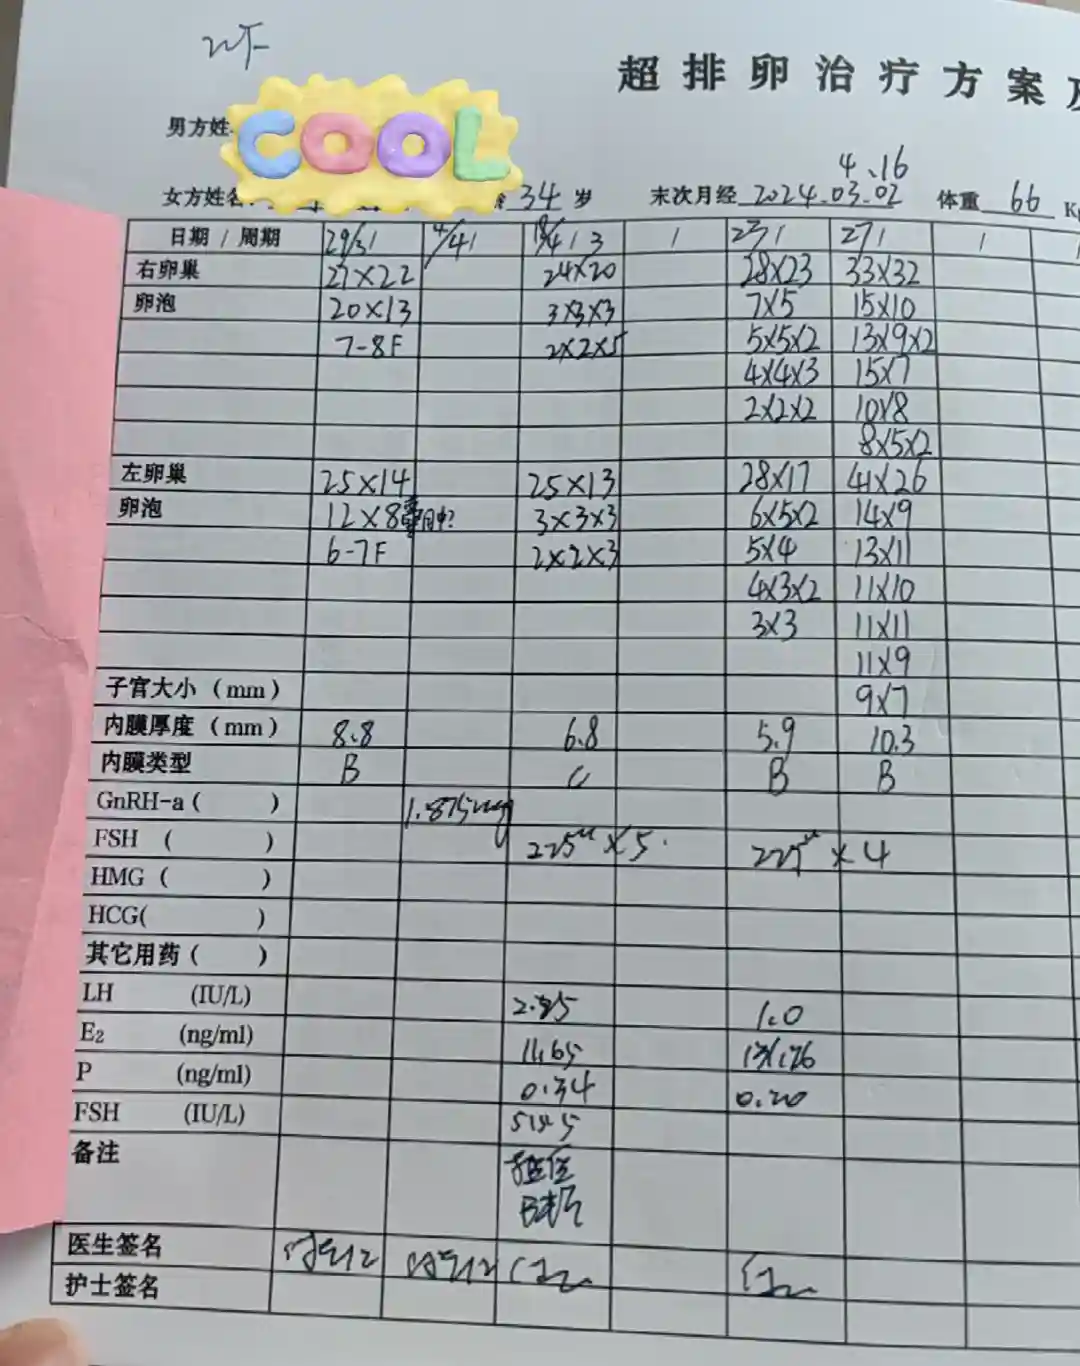 超排卵治疗方案
COOL
男方姓
4.16
女方姓名 34 岁 末次月经 2024.03.02 体重 66 Kg
日期 / 周期 29/31 4/41 18/4 1 3 / 23/ 27/ /
右卵巢 27×22 24×20 28×23 33×32
卵泡 20×13 3×3×3 7×5 15×10
7-8F 2×2×5 5×5×2 13×9×2
4×4×3 15×7
2×2×2 10×8
8×5×2
左卵巢 25×14 25×13 28×17 41×26
卵泡 12×8 3×3×3 6×5×2 14×9
6-7F 2×2×3 5×4 13×11
4×3×2 11×10
3×3 11×11
11×9
子宫大小（mm） 9×7
内膜厚度（mm） 8.8 6.8 5.9 10.3
内膜类型 B C B B
GnRH-a ( ) 1.875mg
FSH ( ) 225u ×5 225u ×4
HMG ( )
HCG( )
其它用药 ( )
LH (IU/L) 1.0
E2 (ng/ml) 11.65
P (ng/ml) 0.34 0.20
FSH (IU/L)
备注
医生签名
护士签名